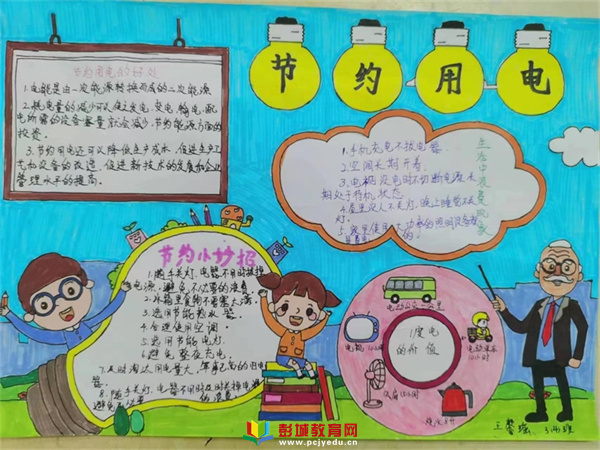 节约用电
节约用电的好处
1.电能是由一次能源转换而成的二次能源
2.耗电量的减少可以使之发电、变电、输电、配
电所需的设备容量就会减少,节约能源方面的
投资.
3.节约用电还可以降低生产成本,促进生产工
艺和设备的改造,促进新技术的发展和企业
管理水平的提高.
生活中浪费现象
1.手机充电不拔电器.
2.空调长期开着.
3.电视没电时不切断电源,长
期处于待机状态
灯.
节约小妙招
1.随手关灯,电器不用时拔掉
电源,避免不必要的浪费
2.冰箱里食物不要塞太满.
3.选用节能热水器
4.合理使用空调
5.选用节能电灯
6.避免整夜充电.
7.及时淘汰用电量大、年龄高的旧电
器.
8.随手关灯,电器不用时及时关掉电源
1度电
的价值
彭城教育网
www.pcjyedu.cn